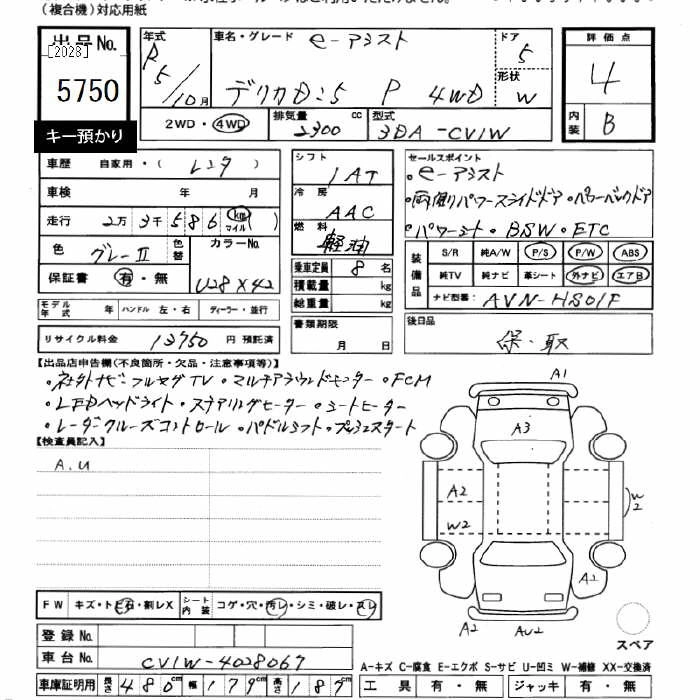 (複合機)対応用紙
出品No.
[2028]
5750
キー預かり
年式 R5/10月
車名・グレード e-アシスト
デリカD:5 P 4WD
ドア 5
形状 W
2WD・4WD
排気量 2300 cc
型式 3DA-CV1W
評価点 4
内装 B
車歴 自家用・( レンタ )
車検 年 月
走行 2万3千586 km マイル( )
色 グレーII
色替
カラーNo. U28X42
保証書 有・無
モデル年式 年 ハンドル 左・右 ディーラー・並行
リサイクル料金 13750 円 預託済
シフト IAT
冷房 AAC
燃料 軽油
乗車定員 8 名
積載量 kg
総重量 kg
書類期限 月 日
セールスポイント
・e-アシスト
・両側パワースライドドア・パワーバックドア
・パワーシート・BSW・ETC
装備品 S/R 純A/W P/S P/W ABS
純TV 純ナビ 革シート 外ナビ エアB
ナビ型番: AVN-HS01F
後日品 保・取
【出品店申告欄(不良箇所・欠品・注意事項等)】
・社外ナビ・フルセグTV・マルチアラウンドモニター・FCM
・LEDヘッドライト・ステアリングヒーター・シートヒーター
・レーダークルーズコントロール・パドルシフト・プッシュスタート
【検査員記入】
A.U
A1
A3
A2
W2
W2
A2
A2
AU2
スペア
FW キズ・トビ石・割レX シート内装 コゲ・穴・汚レ・シミ・破レ・スレ
登録No.
車台No. CV1W-4028067
A-キズ C-腐食 E-エクボ S-サビ U-凹ミ W-補修 XX-交換済
車庫証明用 長さ 480cm 幅 179cm 高さ 187cm
工具 有・無 ジャッキ 有・無